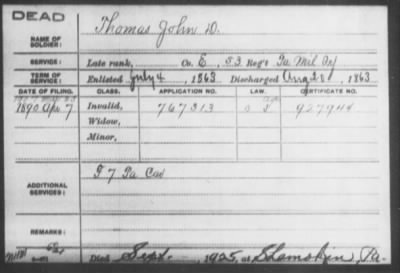 DEAD
NAME OF SOLDIER: Thomas John D.
SERVICE: Late rank, Co. E, 53 Reg't Pa Mil Inf
TERM OF SERVICE: Enlisted July 4, 1863. Discharged Aug 20, 1863.
DATE OF FILING. CLASS. APPLICATION NO. LAW. CERTIFICATE NO.
1890 Apr 7 Invalid, 767313 927944
Widow,
Minor,
ADDITIONAL SERVICES: F 7 Pa Cav
REMARKS:
Died Sept., 1925, at Shamokin, Pa.